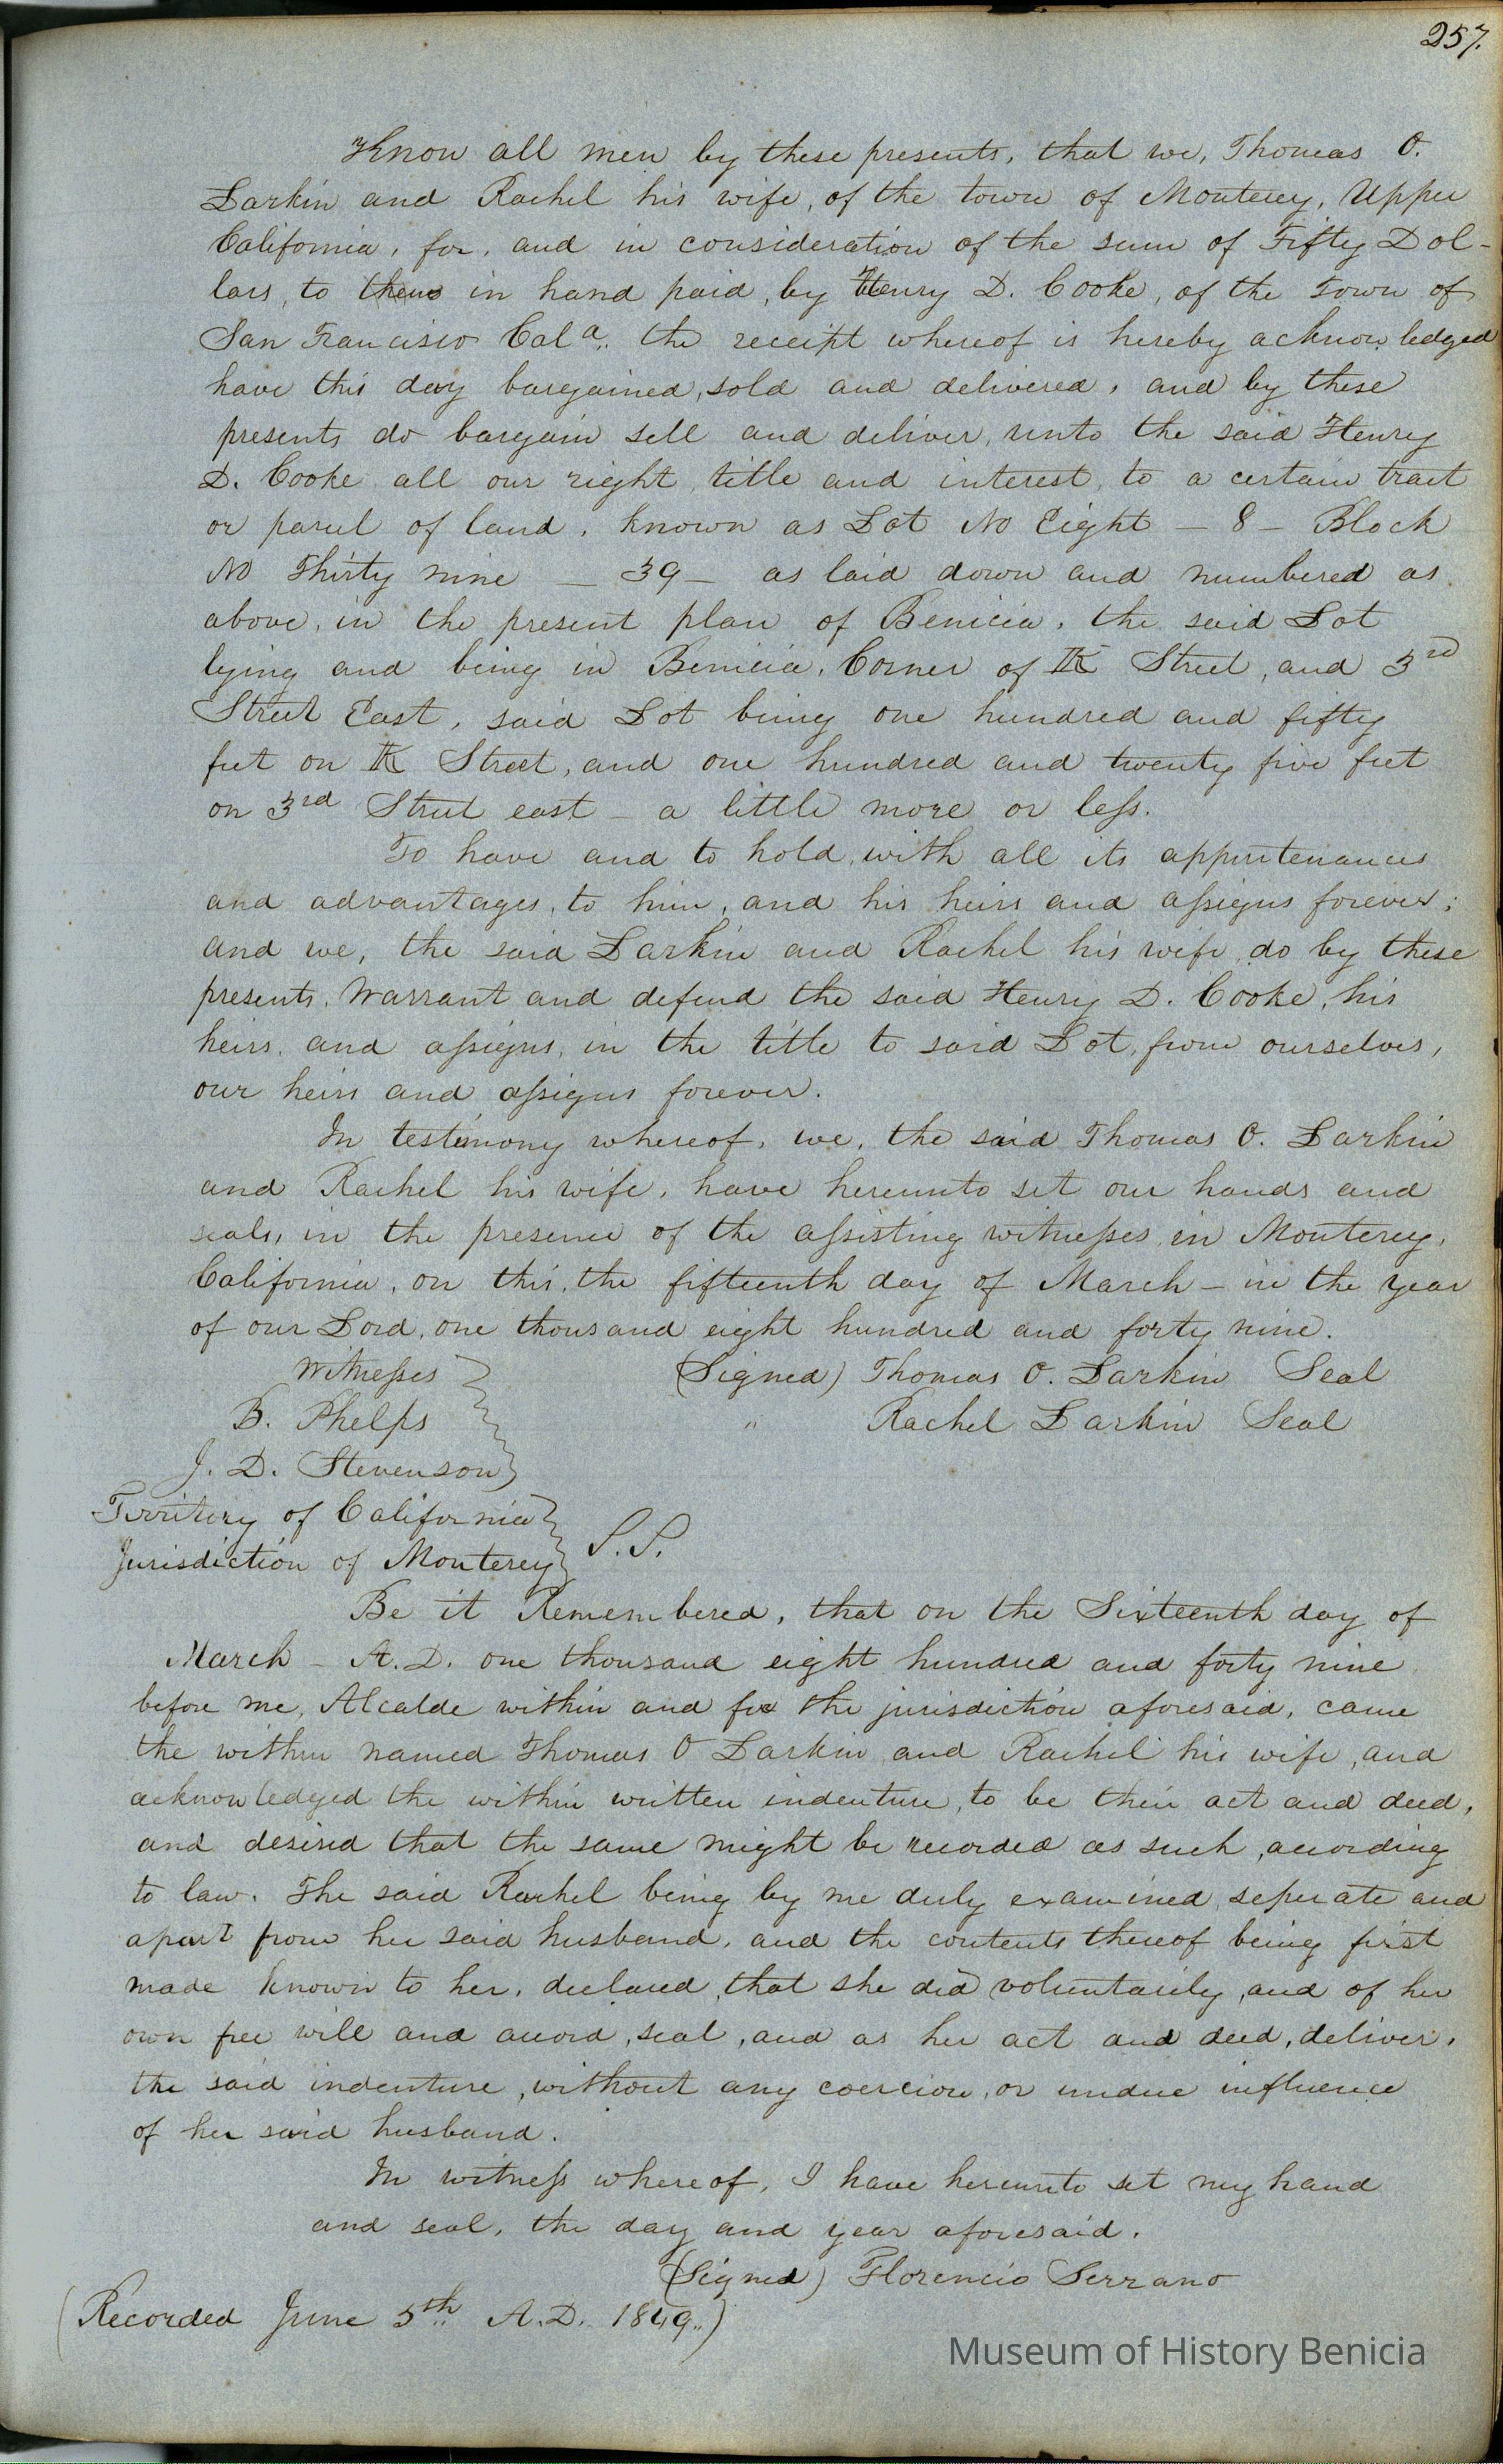 257.
Know all men by these presents, that we, Thomas O.
Larkin and Rachel his wife, of the town of Monterey, Upper
California, for, and in consideration of the sum of Fifty Dol-
lars, to them in hand paid, by Henry D. Cooke, of the Town of
San Francisco Cala. the receipt whereof is hereby acknowledged
have this day bargained, sold and delivered, and by these
presents do bargain sell and deliver, unto the said Henry
D. Cooke all our right, title and interest, to a certain tract
or parcel of land, known as Lot No Eight — 8 — Block
No Thirty nine — 39 — as laid down and numbered as
above, in the present plan of Benicia, the said Lot
lying and being in Benicia, Corner of K Street, and 3rd
Street East, said Lot being one hundred and fifty
feet on K Street, and one hundred and twenty five feet
on 3rd Street east — a little more or less.
To have and to hold, with all its appurtenances
and advantages, to him, and his heirs and assigns forever;
and we, the said Larkin and Rachel his wife, do by these
presents, Warrant and defend the said Henry D. Cooke, his
heirs, and assigns, in the title to said Lot, from ourselves,
our heirs and assigns forever.
In testimony whereof, we, the said Thomas O. Larkin
and Rachel his wife, have hereunto set our hands and
seals, in the presence of the assisting witnesses in Monterey,
California, on this, the fifteenth day of March — in the year
of our Lord, one thousand eight hundred and forty nine.
Witnesses (Signed) Thomas O. Larkin Seal
B. Phelps " Rachel Larkin Seal
J. D. Stevenson
Territory of California
Jurisdiction of Monterey S.S.
Be it Remembered, that on the Sixteenth day of
March — A.D. one thousand eight hundred and forty nine
before me, Alcalde within and for the jurisdiction aforesaid, came
the within named Thomas O Larkin and Rachel his wife, and
acknowledged the within written indenture, to be their act and deed,
and desired that the same might be recorded as such, according
to law. The said Rachel being by me duly examined, seperate and
apart from her said husband, and the contents thereof being first
made known to her, declared, that she did voluntarily, and of her
own free will and accord, seal, and as her act and deed, deliver,
the said indenture, without any coercion, or undue influence
of her said husband.
In witness whereof, I have hereunto set my hand
and seal, the day and year aforesaid.
(Signed) Florencio Serrano
(Recorded June 5th A.D. 1849.)
Museum of History Benicia